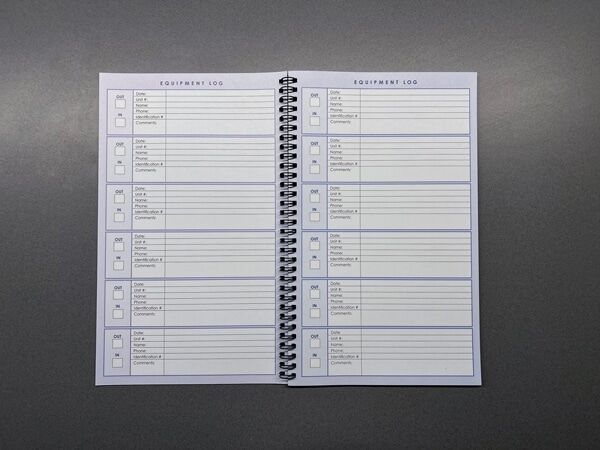 EQUIPMENT LOG
OUT
IN
Date:
Unit #:
Name:
Phone:
Identification #
Comments:
OUT
IN
Date:
Unit #:
Name:
Phone:
Identification #
Comments:
OUT
IN
Date:
Unit #:
Name:
Phone:
Identification #
Comments:
OUT
IN
Date:
Unit #:
Name:
Phone:
Identification #
Comments:
OUT
IN
Date:
Unit #:
Name:
Phone:
Identification #
Comments:
OUT
IN
Date:
Unit #:
Name:
Phone:
Identification #
Comments:
EQUIPMENT LOG
OUT
IN
Date:
Unit #:
Name:
Phone:
Identification #
Comments:
OUT
IN
Date:
Unit #:
Name:
Phone:
Identification #
Comments:
OUT
IN
Date:
Unit #:
Name:
Phone:
Identification #
Comments:
OUT
IN
Date:
Unit #:
Name:
Phone:
Identification #
Comments:
OUT
IN
Date:
Unit #:
Name:
Phone:
Identification #
Comments:
OUT
IN
Date:
Unit #:
Name:
Phone:
Identification #
Comments: